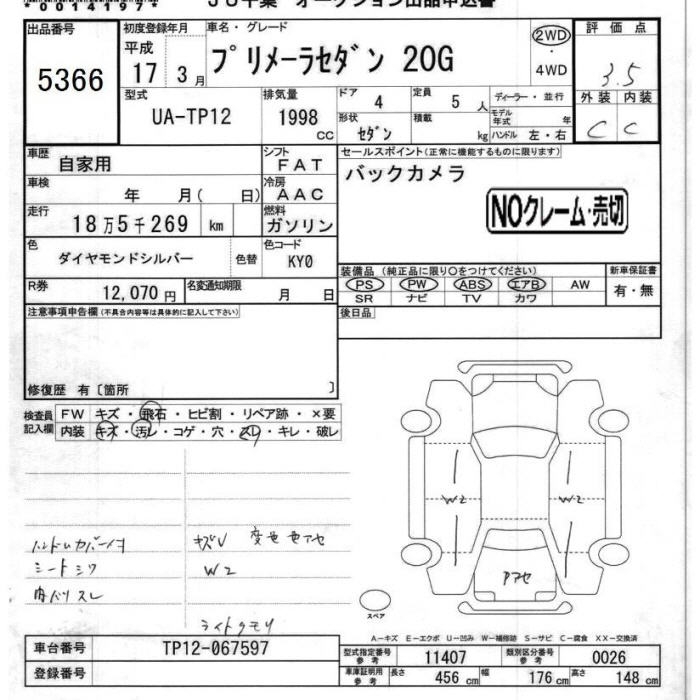 00141197*
JU千葉 オークション出品申込書
出品番号 初度登録年月 車名・グレード 評価点
5366 平成 17 3月 プリメーラセダン 20G 2WD・4WD 3.5
型式 排気量 ドア 4 定員 5人 ディーラー・並行 外装 内装
UA-TP12 1998cc 形状 セダン 積載 kg モデル年式 年 ハンドル 左・右 C C
車歴 自家用 シフト FAT セールスポイント(正常に機能するものに限ります)
車検 年 月( 日) 冷房 AAC バックカメラ
NOクレーム・売切
走行 18万5千269 km 燃料 ガソリン
色 ダイヤモンドシルバー 色替 色コード KY0
装備品(純正品に限り○をつけてください) 新車保証書
PS PW ABS エアB AW 有・無
SR ナビ TV カワ
R券 12,070円 名変通知期限 月 日
注意事項申告欄(不具合内容等は具体的に記入して下さい) 後日品
修復歴 有〔箇所 〕
検査員記入欄 FW キズ・飛石・ヒビ割・リペア跡・×要
内装 キズ・汚レ・コゲ・穴・スレ・キレ・破レ
W2 W2
ハンドルカバー付 キズV 変色 色アセ
シートシワ W2
内バリスレ
Pアセ
スペア
ライトクモリ
A-キズ E-エクボ U-凹み W-補修跡 S-サビ C-腐食 XX-交換済
車台番号 TP12-067597
型式指定番号 参考 11407 類別区分番号 参考 0026
登録番号
車庫証明用 参考 長さ 456cm 幅 176cm 高さ 148cm